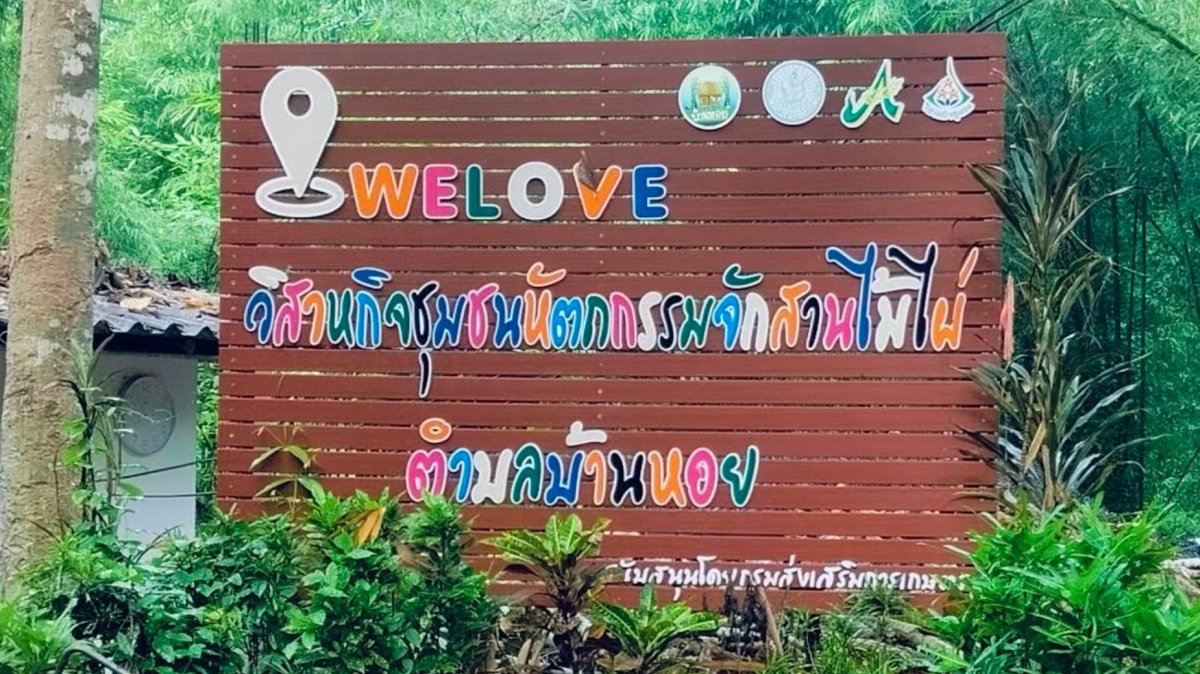 WELOVE
วิสาหกิจชุมชนหัตถกรรมจักสานไม้ไผ่
ตำบลบ้านหอย
สนับสนุนโดยกรมส่งเสริมการเกษตร